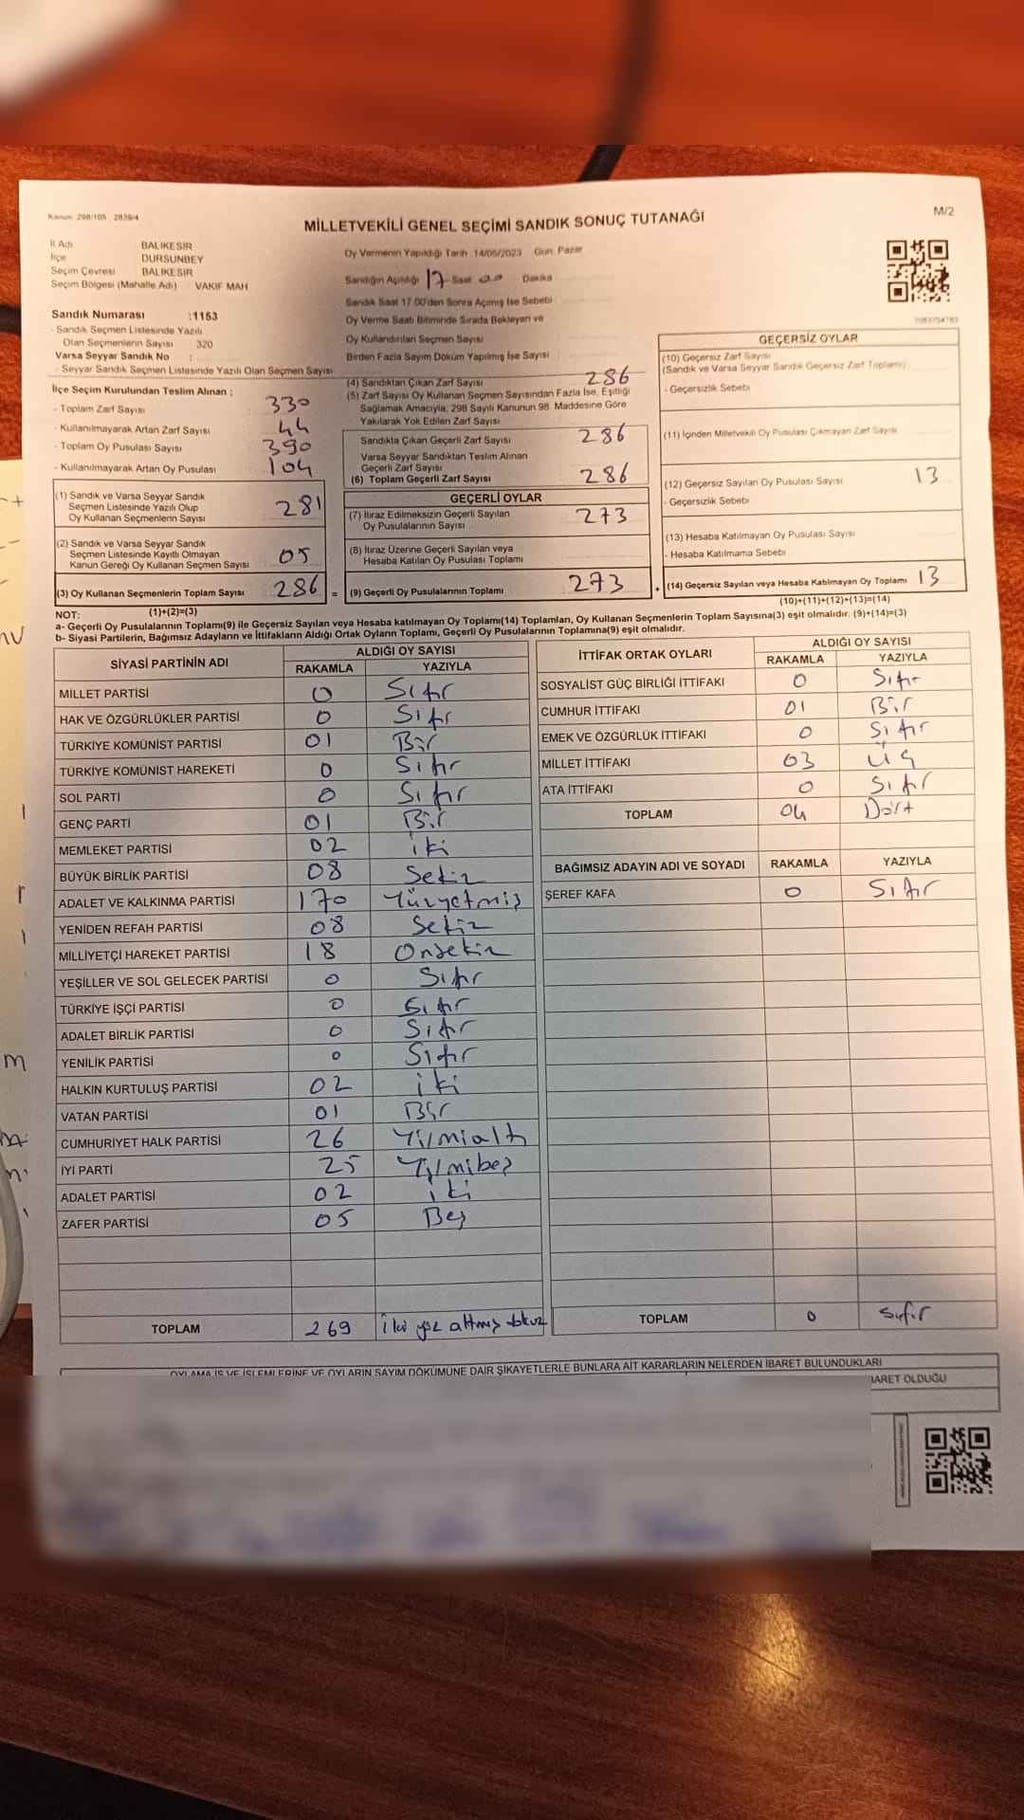 Kanun: 298/105 2839/4
MİLLETVEKİLİ GENEL SEÇİMİ SANDIK SONUÇ TUTANAĞI
M/2
İl Adı BALIKESİR
İlçe DURSUNBEY
Seçim Çevresi BALIKESİR
Seçim Bölgesi (Mahalle Adı) VAKIF MAH
Sandık Numarası :1153
- Sandık Seçmen Listesinde Yazılı
Olan Seçmenlerin Sayısı 320
Varsa Seyyar Sandık No :
- Seyyar Sandık Seçmen Listesinde Yazılı Olan Seçmen Sayısı
Oy Vermenin Yapıldığı Tarih :14/05/2023 Gün: Pazar
Sandığın Açıldığı 17 Saat 00 Dakika
Sandık Saat 17.00'den Sonra Açılmış İse Sebebi
Oy Verme Saati Bitiminde Sırada Bekleyen ve
Oy Kullandırılan Seçmen Sayısı
Birden Fazla Sayım Döküm Yapılmış İse Sayısı
İlçe Seçim Kurulundan Teslim Alınan :
- Toplam Zarf Sayısı 330
- Kullanılmayarak Artan Zarf Sayısı 44
- Toplam Oy Pusulası Sayısı 390
- Kullanılmayarak Artan Oy Pusulası 104
(1) Sandık ve Varsa Seyyar Sandık
Seçmen Listesinde Yazılı Olup
Oy Kullanan Seçmenlerin Sayısı 281
(2) Sandık ve Varsa Seyyar Sandık
Seçmen Listesinde Kayıtlı Olmayan
Kanun Gereği Oy Kullanan Seçmen Sayısı 05
(3) Oy Kullanan Seçmenlerin Toplam Sayısı 286 =
(1)+(2)=(3)
(4) Sandıktan Çıkan Zarf Sayısı 286
(5) Zarf Sayısı Oy Kullanan Seçmen Sayısından Fazla İse, Eşitliği
Sağlamak Amacıyla, 298 Sayılı Kanunun 98. Maddesine Göre
Yakılarak Yok Edilen Zarf Sayısı
Sandıkta Çıkan Geçerli Zarf Sayısı 286
Varsa Seyyar Sandıktan Teslim Alınan
Geçerli Zarf Sayısı
(6) Toplam Geçerli Zarf Sayısı 286
GEÇERLİ OYLAR
(7) İtiraz Edilmeksizin Geçerli Sayılan
Oy Pusulalarının Sayısı 273
(8) İtiraz Üzerine Geçerli Sayılan veya
Hesaba Katılan Oy Pusulası Toplamı
(9) Geçerli Oy Pusulalarının Toplamı 273 +
GEÇERSİZ OYLAR
(10) Geçersiz Zarf Sayısı
(Sandık ve Varsa Seyyar Sandık Geçersiz Zarf Toplamı)
- Geçersizlik Sebebi
(11) İçinden Milletvekili Oy Pusulası Çıkmayan Zarf Sayısı
(12) Geçersiz Sayılan Oy Pusulası Sayısı 13
- Geçersizlik Sebebi
(13) Hesaba Katılmayan Oy Pusulası Sayısı
- Hesaba Katılmama Sebebi
(14) Geçersiz Sayılan veya Hesaba Katılmayan Oy Toplamı 13
(10)+(11)+(12)+(13)=(14)
NOT:
a- Geçerli Oy Pusulasının Toplamı(9) ile Geçersiz Sayılan veya Hesaba katılmayan Oy Toplamı(14) Toplamları, Oy Kullanan Seçmenlerin Toplam Sayısına(3) eşit olmalıdır. (9)+(14)=(3)
b- Siyasi Partilerin, Bağımsız Adayların ve İttifakların Aldığı Ortak Oyların Toplamı, Geçerli Oy Pusulalarının Toplamına(9) eşit olmalıdır.
SİYASİ PARTİNİN ADI ALDIĞI OY SAYISI
RAKAMLA YAZIYLA
MİLLET PARTİSİ 0 Sıfır
HAK VE ÖZGÜRLÜKLER PARTİSİ 0 Sıfır
TÜRKİYE KOMÜNİST PARTİSİ 01 Bir
TÜRKİYE KOMÜNİST HAREKETİ 0 Sıfır
SOL PARTİ 0 Sıfır
GENÇ PARTİ 01 Bir
MEMLEKET PARTİSİ 02 iki
BÜYÜK BİRLİK PARTİSİ 08 Sekiz
ADALET VE KALKINMA PARTİSİ 170 Yüzyetmiş
YENİDEN REFAH PARTİSİ 08 Sekiz
MİLLİYETÇİ HAREKET PARTİSİ 18 Onsekiz
YEŞİLLER VE SOL GELECEK PARTİSİ 0 Sıfır
TÜRKİYE İŞÇİ PARTİSİ 0 Sıfır
ADALET BİRLİK PARTİSİ 0 Sıfır
YENİLİK PARTİSİ 0 Sıfır
HALKIN KURTULUŞ PARTİSİ 02 iki
VATAN PARTİSİ 01 Bir
CUMHURİYET HALK PARTİSİ 26 Yirmialtı
İYİ PARTİ 25 Yirmibeş
ADALET PARTİSİ 02 iki
ZAFER PARTİSİ 05 Beş
TOPLAM 269 iki yüz altmış dokuz
İTTİFAK ORTAK OYLARI ALDIĞI OY SAYISI
RAKAMLA YAZIYLA
SOSYALİST GÜÇ BİRLİĞİ İTTİFAKI 0 Sıfır
CUMHUR İTTİFAKI 01 Bir
EMEK VE ÖZGÜRLÜK İTTİFAKI 0 Sıfır
MİLLET İTTİFAKI 03 Üç
ATA İTTİFAKI 0 Sıfır
TOPLAM 04 Dört
BAĞIMSIZ ADAYIN ADI VE SOYADI RAKAMLA YAZIYLA
ŞEREF KAFA 0 Sıfır
TOPLAM 0 Sıfır
OYLAMA İŞ VE İŞLEMLERİNE VE OYLARIN SAYIM DÖKÜMÜNE DAİR ŞİKAYETLERLE BUNLARA AİT KARARLARIN NELERDEN İBARET BULUNDUKLARI
İBARET OLDUĞU